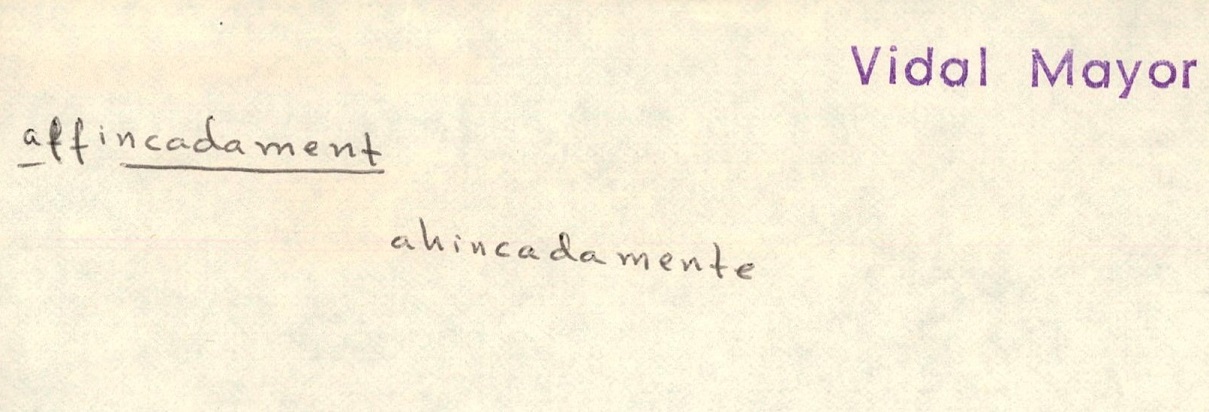 Vidal Mayor
affincadament
ahincadamente